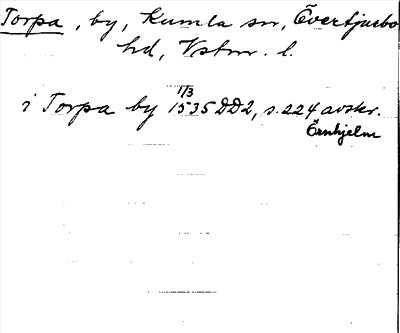 Torpa, by, Kumla sn, Övertjurbo
hd, Vstm. l.
1/3
i Torpa by 1535 DD2, s. 224 avskr.
Örnhjelm